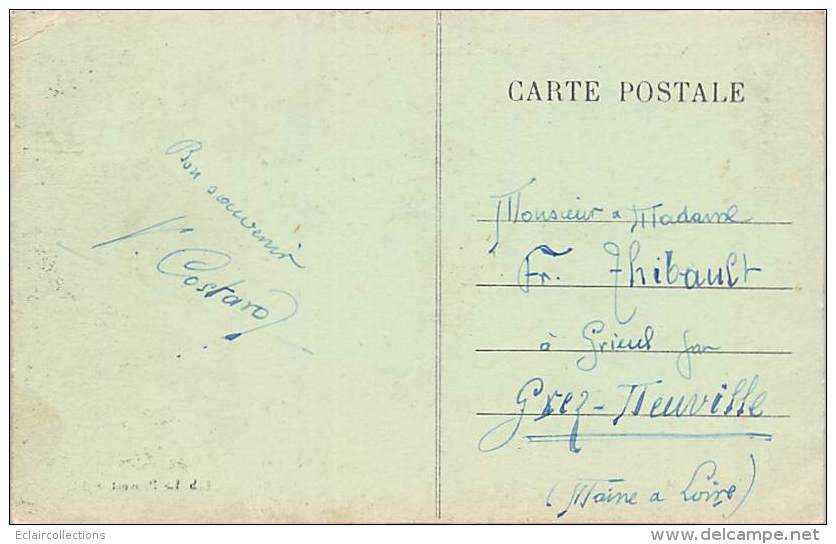 CARTE POSTALE
Bon souvenir
Costard
Monsieur & Madame
Fr. Thibault
à Grieul par
Grez-Neuville
(Maine & Loire)
Eclaircollections
delcampe.net